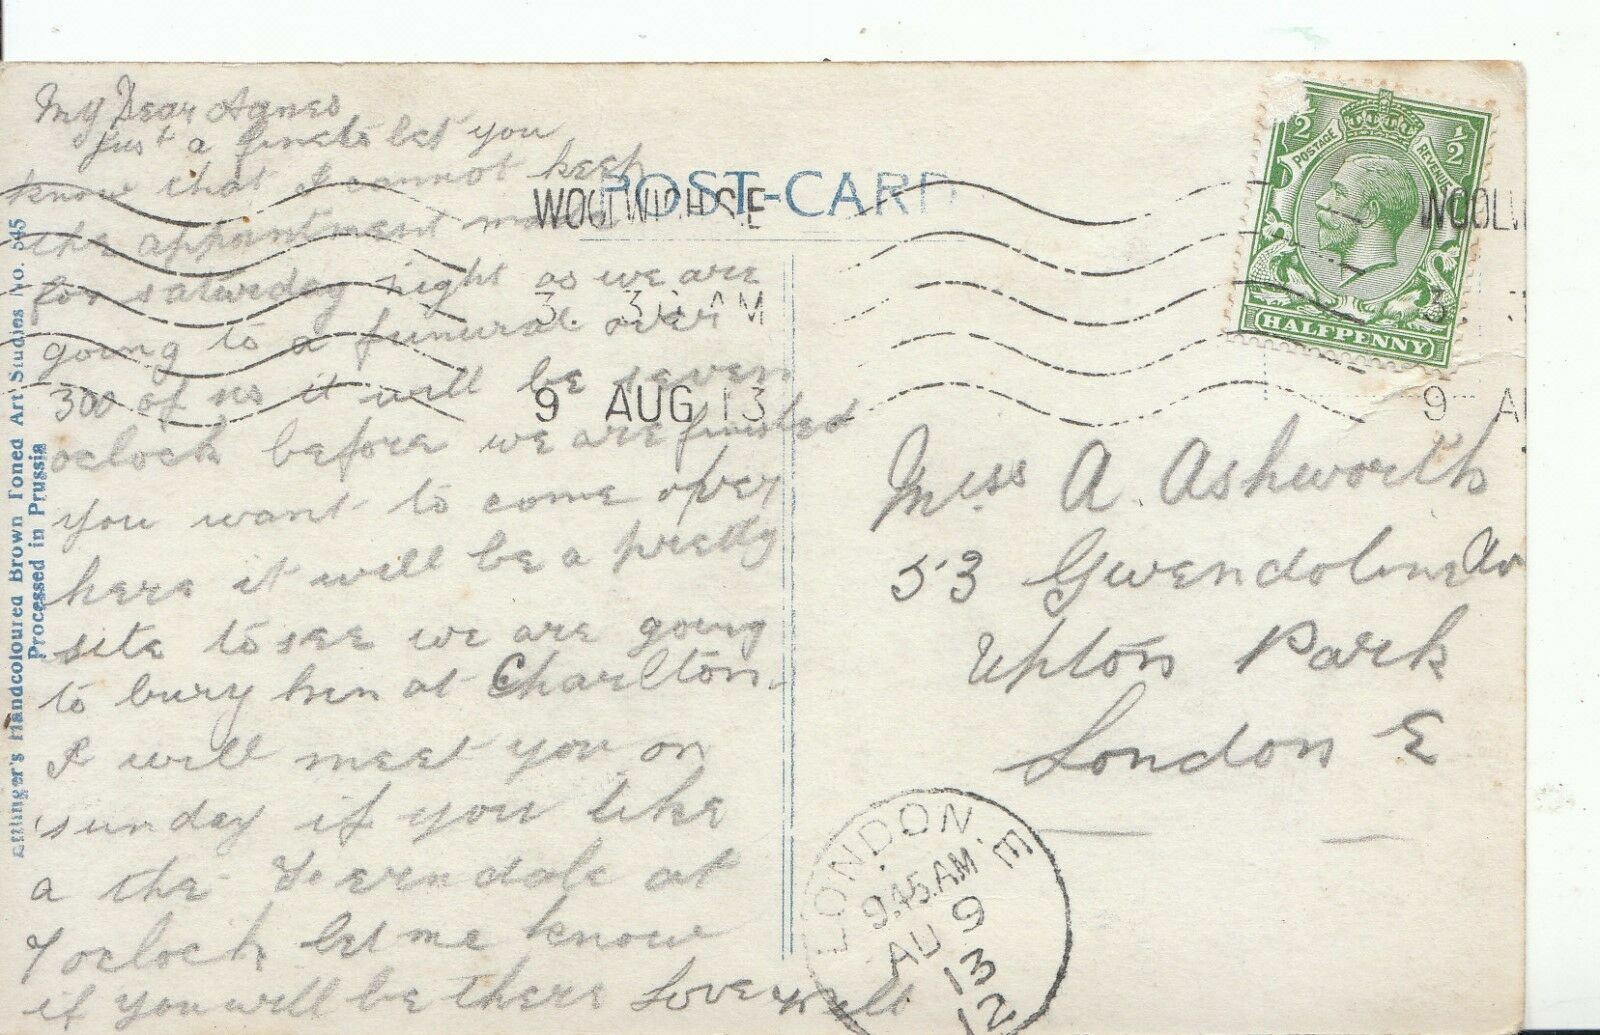 My Dear Agnes
just a line to let you
know that I cannot keep
the appointment made
for saturday night as we are
going to a funural over
300 of us it will be seven
oclock before we are finished
you want to come over
here it will be a pretty
site to see we are going
to bury him at Charlton.
I will meet you on
sunday if you like
a the Ferndale at
7 oclock let me know
if you will be there Love
POST-CARD
WOOLWICH S.E
3. 30 AM
9 AUG 13
POSTAGE REVENUE
½ ½
HALFPENNY
WOOLW
3
9 AU
Miss A. Ashworth
53 Gwendoline Av
Upton Park
London E
LONDON. E
9.45.AM
AU 9
13
12
Ettlinger's Handcoloured Brown Toned Art Studies No. 545
Processed in Prussia